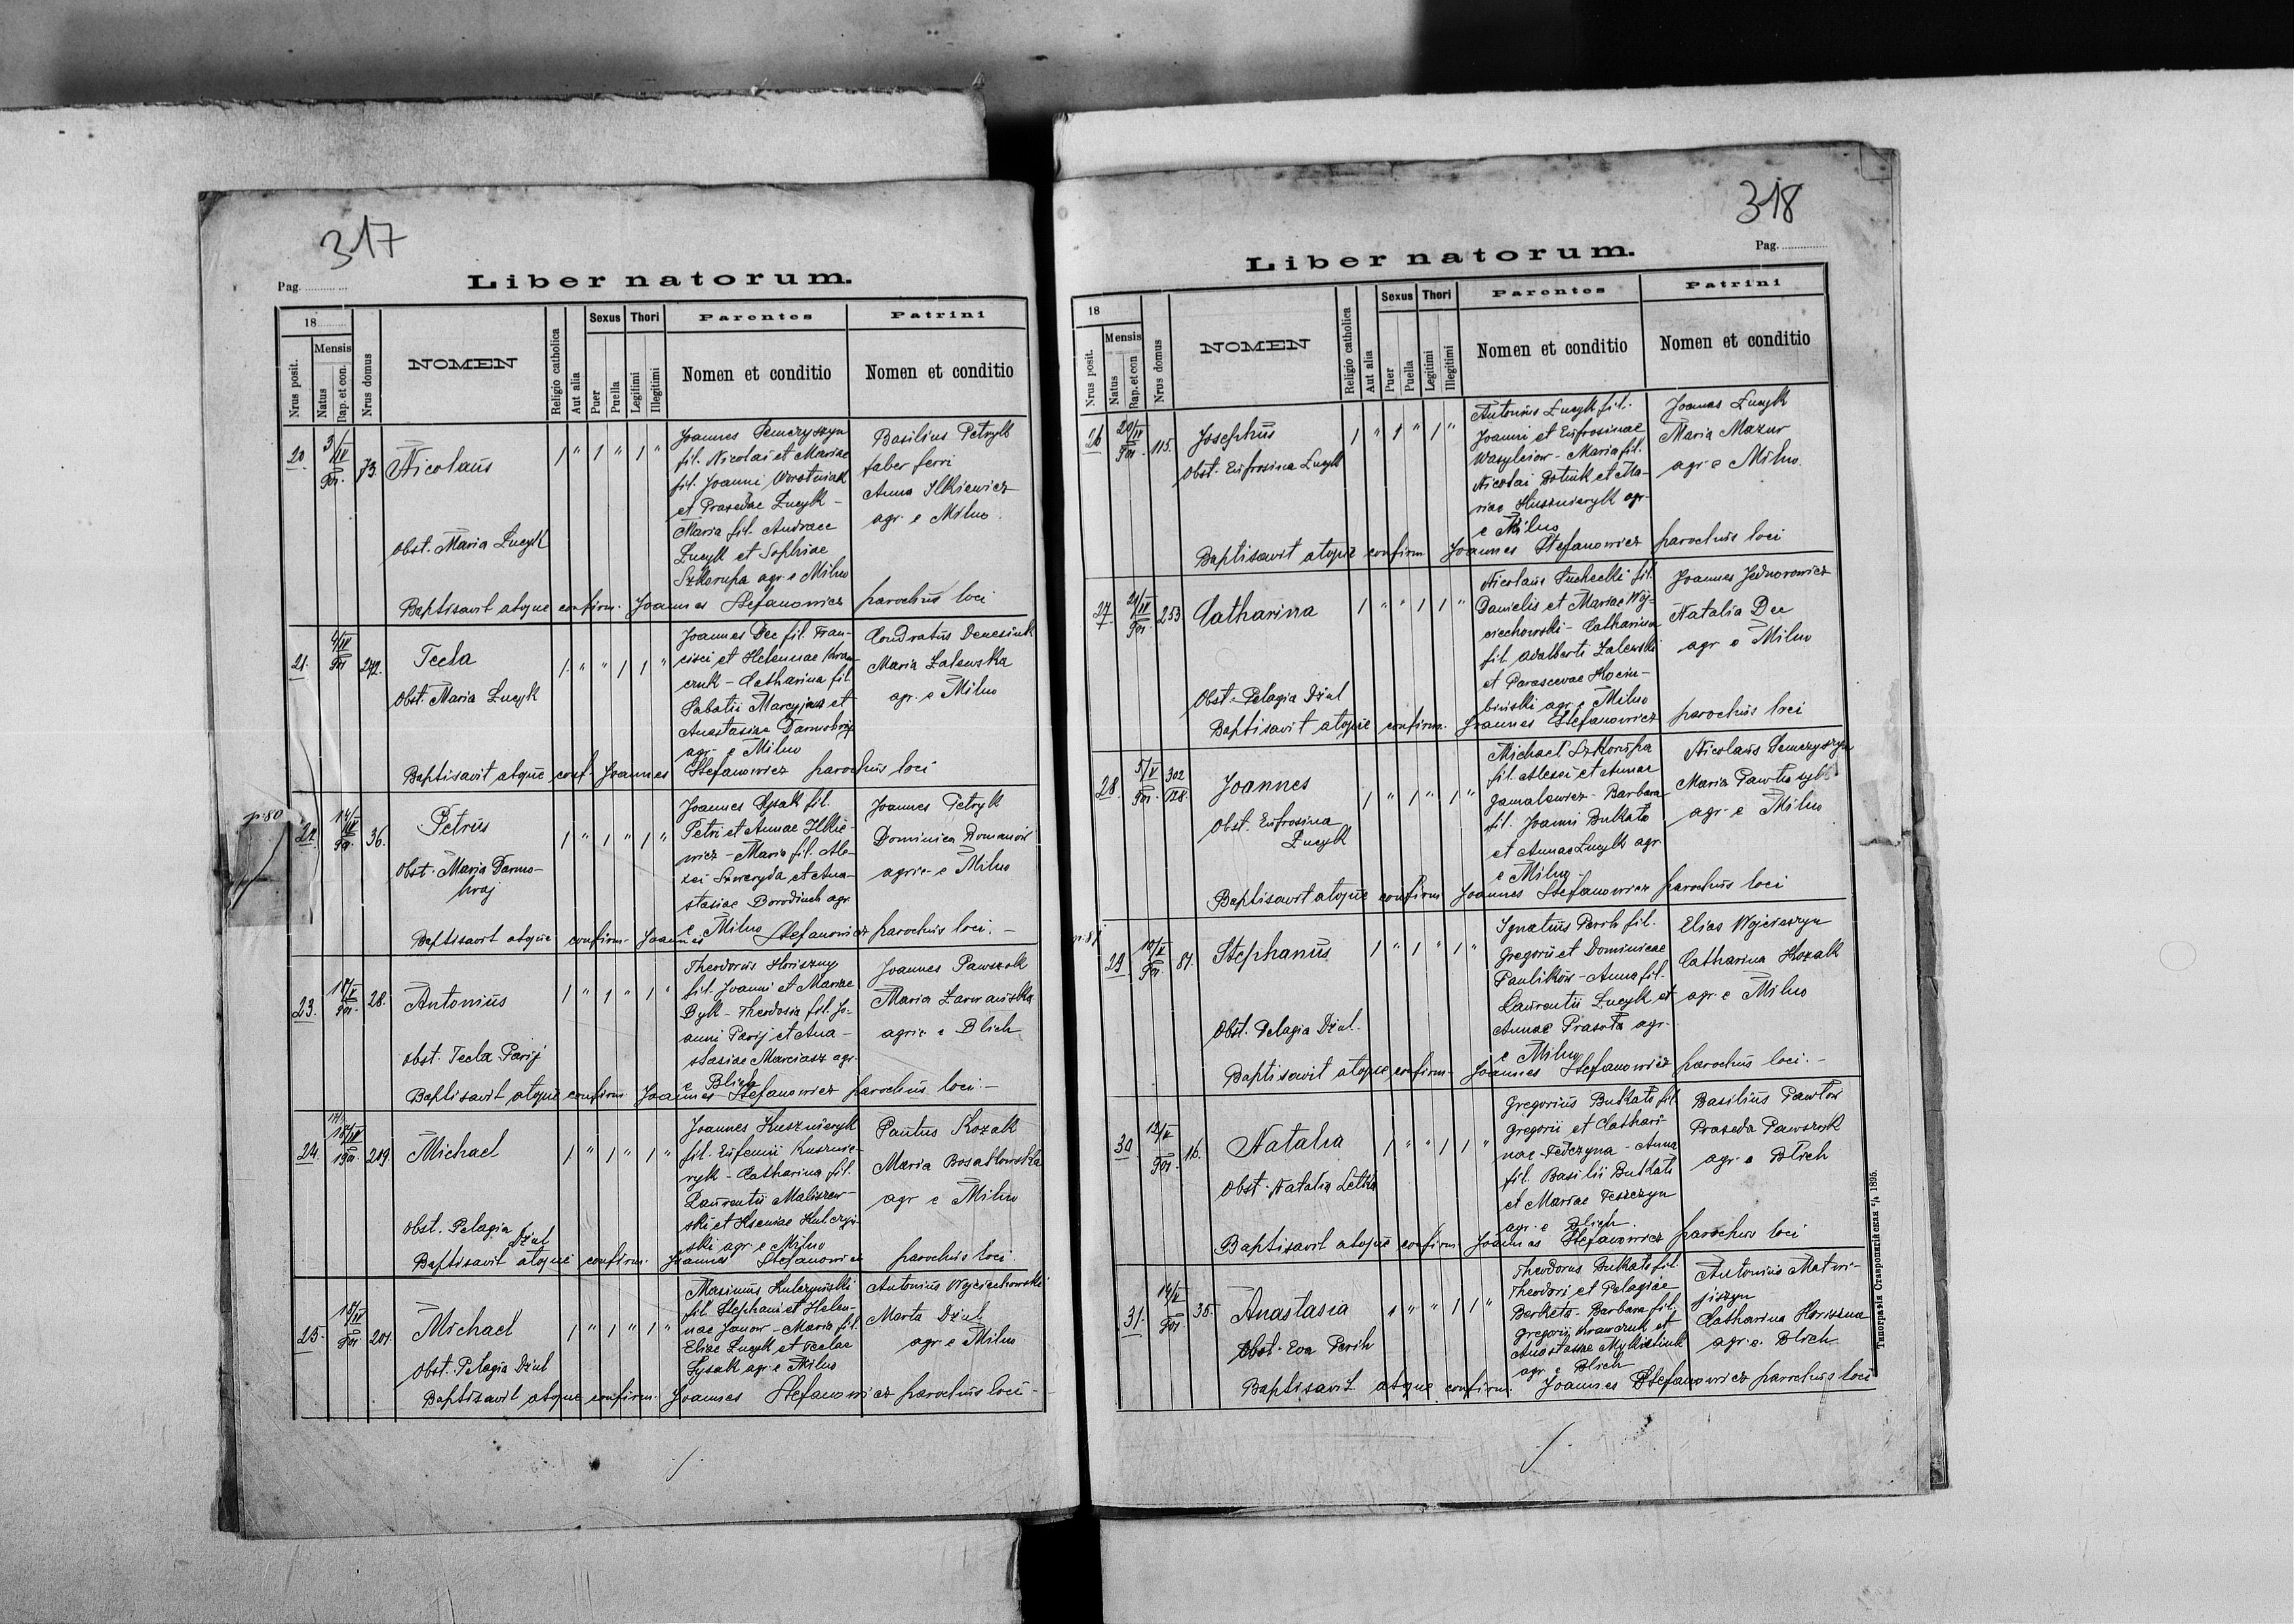 317
Pag.
Liber natorum.
18
Nrus posit.
Mensis
Natus
Bap. et con.
Nrus domus
NOMEN
Religio catholica
Aut alia
Sexus
Puer
Puella
Thori
Legitimi
Illegitimi
Parentes
Nomen et conditio
Patrini
Nomen et conditio
20
3/IV
901.
73.
Nicolaus
1 " 1 " 1 "
Obst. Maria Łucyk
Joannes Semczyszyn
fil. Nicolai et Mariae
fil. Joanni Worotniak
et Praxedae Łucyk -
Maria fil. Andreae
Łucyk et Sophiae
Szkorupa agr. e Milno
Basilius Petryk
faber ferri
Anna Ilkiewicz
agr. e Milno.
Baptisavit atque confirm. Joannes Stefanowicz parochus loci
21.
4/IV
901
242.
Tecla
1 " " 1 1 "
Obst. Maria Łucyk
Joannes Dec fil. Fran-
cisci et Helennae Kraw-
czuk - Catharina fil.
Sabatii Marcyjasz et
Anastasiae Darmohraj
agr. e Milno
Condratus Denesiuk
Maria Zalewska
agr. e Milno
Baptisavit atque conf. Joannes Stefanowicz parochus loci
p. 80
22.
14/IV
901.
36.
Petrus
1 " 1 " 1 "
Obst. Maria Darmo-
hraj
Joannes Łysak fil.
Petri et Annae Ilkie-
wicz - Maria fil. Ale-
xei Szweryda et Ana-
stasiae Borodiuch agr.
e Milno
Joannes Petryk
Dominica Romanów
agric. e Milno
Baptisavit atque confirm. Joannes Stefanowicz parochus loci. -
23.
901.
28.
Antonius
1 " 1 " 1 "
Obst. Tecla Parij
Theodorus Horiszny
fil. Joanni et Mariae
Byk - Theodosia fil. Jo-
anni Parij et Ana-
stasiae Marciasz agr.
e Blich
Joannes Pawszok
Maria Zarwańska
agric. e Blich
Baptisavit atque confirm. Joannes Stefanowicz parochus loci. -
24.
1901.
209.
Michael
1 " 1 " 1 "
Obst. Pelagia Dziul
Joannes Kusznieryk
fil. Eufemii Kusznie-
ryk - Catharina fil.
Laurentii Maliszew-
ski et Kseniae Kulczyń-
ski agr. e Milno
Pantus Kozak
Maria Bosakowska
agr. e Milno
Baptisavit atque confirm. Joannes Stefanowicz parochus loci
25.
18/IV
901
201.
Michael
1 " 1 " 1 "
Obst. Pelagia Dziul
Maximus Kulczyński
fil. Stephani et Helen-
nae Janow - Maria fil.
Eliae Łucyk et Teclae
Łysak agr. e Milno
Antonius Wojciechowski
Marta Dziul
agr. e Milno
Baptisavit atque confirm. Joannes Stefanowicz parochus loci -
318
Pag.
Liber natorum.
18
Nrus posit.
Mensis
Natus
Bap. et con
Nrus domus
NOMEN
Religio catholica
Aut alia
Sexus
Puer
Puella
Thori
Legitimi
Illegitimi
Parentes
Nomen et conditio
Patrini
Nomen et conditio
26
20/IV
901.
115.
Josephus
1 " 1 " 1 "
Obst. Eufrosina Łucyk
Antonius Łucyk fil.
Joanni et Eufrosinae
Wasylciow - Maria fil.
Nicolai Botiuk et Ma-
riae Kusznieryk agr.
e Milno
Joannes Łucyk
Maria Mazur
agr. e Milno.
Baptisavit atque confirm Joannes Stefanowicz parochus loci
27
21/IV
901.
253
Catharina
1 " " 1 1 "
Obst. Pelagia Dziul
Nicolaus Suchecki fil.
Danielis et Mariae Woj-
ciechowski - Catharina
fil. Adalberti Zalewski
et Parascevae Kociu-
biński agr. e Milno
Joannes Jednorowicz
Natalia Dec
agr. e Milno
Baptisavit atque confirm. Joannes Stefanowicz parochus loci
28.
5/V
901.
302
128.
Joannes
1 " 1 " 1 "
Obst. Eufrosina
Łucyk
Michael Szkorupa
fil. Alexei et Annae
Gamalewicz - Barbara
fil. Joanni Bukato
et Annae Łucyk agr
e Milno
Nicolaus Semczyszyn
Maria
agr. e Milno
Baptisavit atque confirm Joannes Stefanowicz parochus loci
p. 81
29
10/V
901.
81.
Stephanus
1 " 1 " 1 "
Obst. Pelagia Dziul.
Ignatius Perih fil.
Gregorii et Dominicae
Paulików - Anna fil.
Laurentii Łucyk et
Annae Prasota agr.
e Milno
Elias Wojciszyn
Catharina Kozak
agr. e Milno
Baptisavit atque confirm. Joannes Stefanowicz parochus loci. -
30
12/V
901.
16.
Natalia
1 " " 1 1 "
Obst. Natalia Letka
Gregorius Bukato fil.
Gregorii et Cathari-
nae Fedczyna - Anna
fil. Basilii Bukato
et Mariae Feszczyn
agr. e Blich.
Basilius Pawłow
Praxeda Pawszok
agr. e Blich
Baptisavit atque confirm. Joannes Stefanowicz parochus loci
31.
14/V
901.
35.
Anastasia
1 " " 1 1 "
Obst. Eva Perih
Theodorus Bukato fil.
Theodori et Pelagiae
Berketa - Barbara fil.
Gregorii Krawczuk et
Anastasiae Mykietiuk
agr. e Blich
Antonius Matwi-
jiszyn
Catharina Horiszna
agr. e. Blich
Baptisavit atque confirm. Joannes Stefanowicz parochus loci
Типографія Ставропигійская 1895.